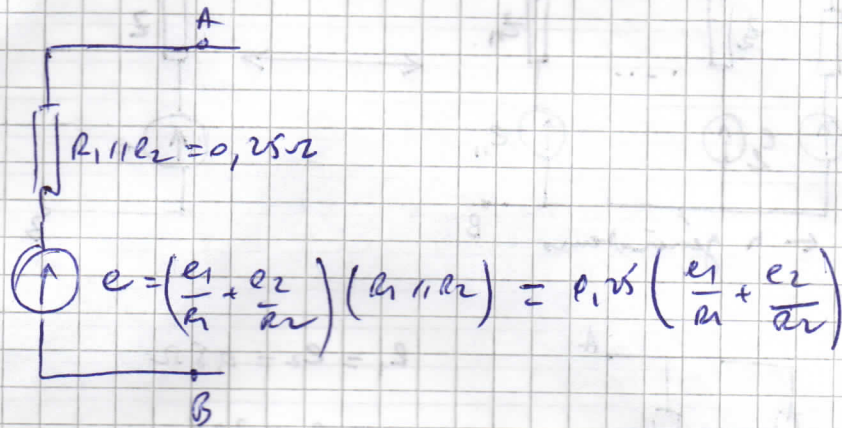 A
R₁ // R₂ = 0,25Ω
e = (e₁/R₁ + e₂/R₂) (R₁ // R₂) = 0,25 (e₁/R₁ + e₂/R₂)
B